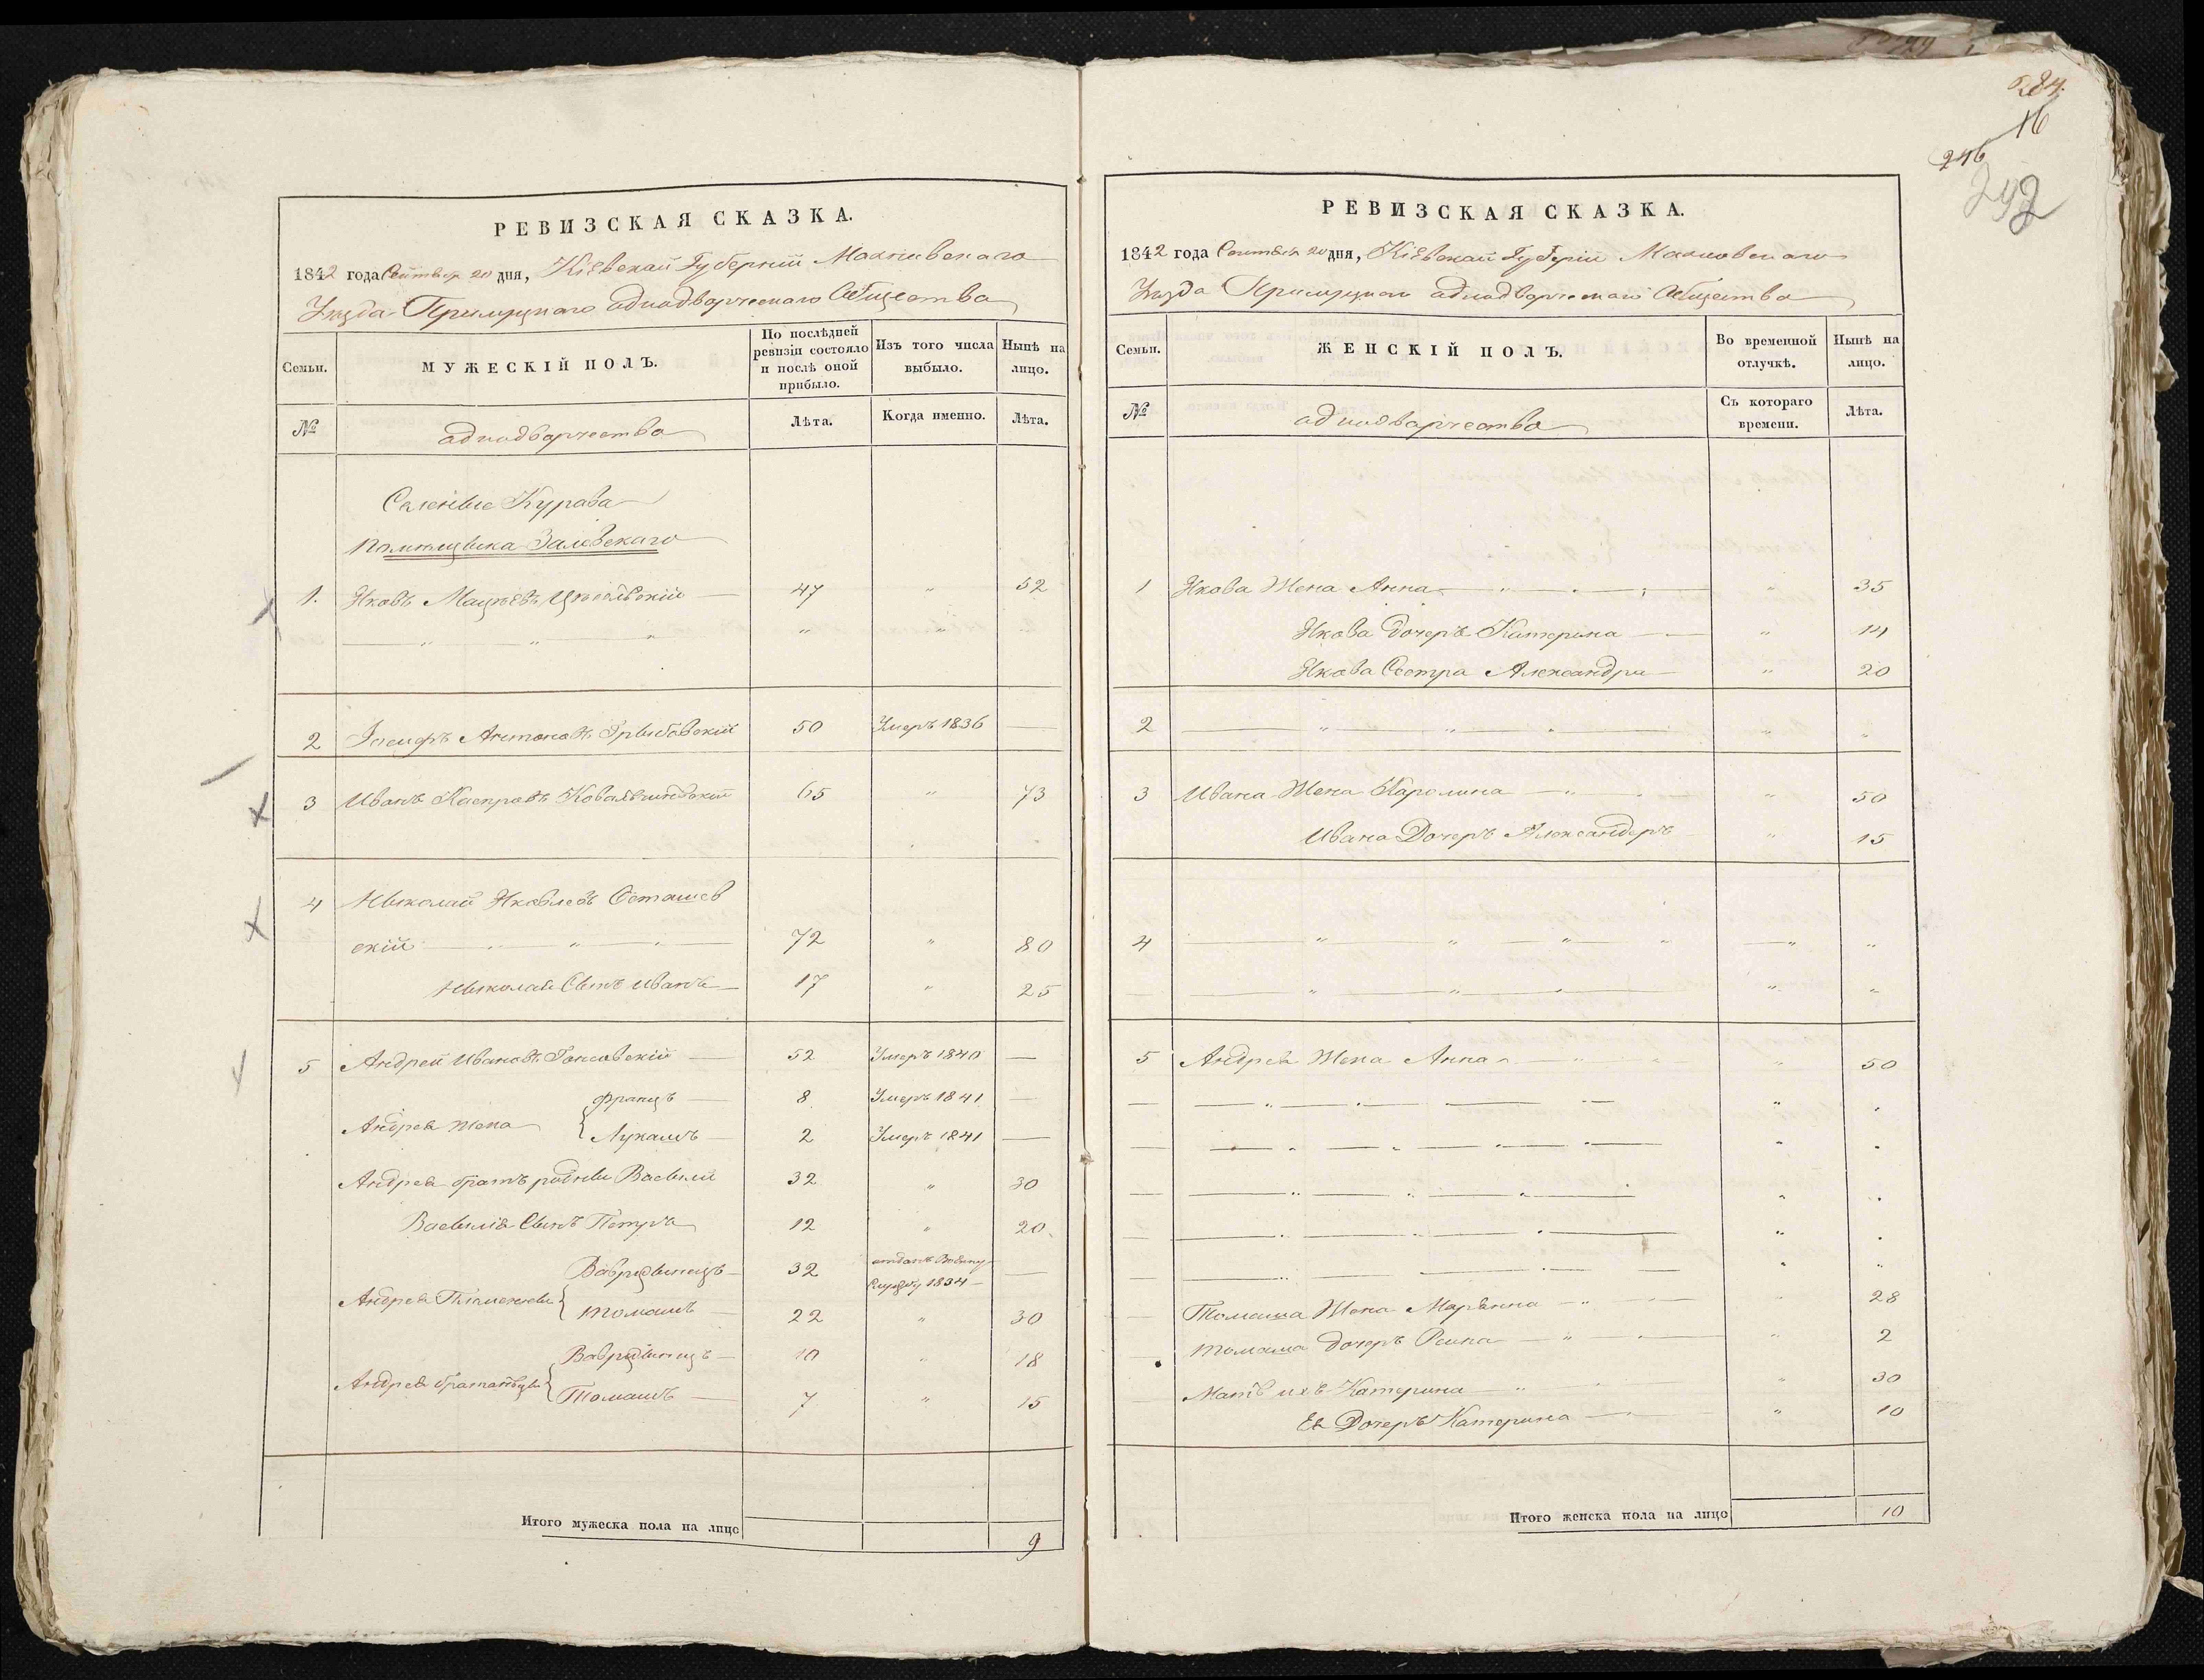 284.
16
246
292
РЕВИЗСКАЯ СКАЗКА.
1842 года Сентября 20 дня, Кіевской Губерніи Махновскаго
Уезда Прилуцкаго аднодворческаго Общества
Семьи.
МУЖЕСКІЙ ПОЛЪ.
По послѣдней ревизіи состояло и послѣ оной прибыло.
Изъ того числа выбыло.
Нынѣ на лицо.
№
аднодворчества
Лѣта.
Когда именно.
Лѣта.
Селеніе Курава
Помещика Залевскаго
1. Яковъ 47 " 52
2 Антоновъ 50 Умеръ 1836 —
3 Иванъ Каспровъ 65 " 73
4 Николай Яковлевъ Осташев
скій 72 " 80
Николая Сынъ Иванъ 17 " 25
5 Андрей Ивановъ 52 Умеръ 1840 —
Францъ 8 Умеръ 1841 —
Андрея {
Лукашъ 2 Умеръ 1841 —
Андрея братъ родны Василій 32 " 30
Василія Сынъ Петръ 12 " 20
32 отданъ
1834 —
Андрея Племеники { Томашъ 22 " 30
10 " 18
Андрея { Томашъ 7 " 15
Итого мужеска пола на лицо
9
РЕВИЗСКАЯ СКАЗКА.
1842 года Сентября 20 дня, Кіевской Губеріи Махновскаго
Уезда Прилуцкаго аднодворческаго Общества
Семьи.
ЖЕНСКІЙ ПОЛЪ.
Во временной отлучкѣ.
Нынѣ на лицо.
№
аднодворчества
Съ котораго времени.
Лѣта.
1 Якова Жена Анна " 35
Якова дочеръ Катерина " 14
Якова Сестра Александра " 20
2
3 Ивана Жена Каролина " 50
Ивана Дочеръ Александеръ " 15
4
5 Андрея Жена Анна " 50
Томаша Жена Марьяна " 28
Томаша дочеръ " 2
Матъ ихъ Катерина " 30
Ея Дочеръ Катерина " 10
Итого женска пола на лицо
10